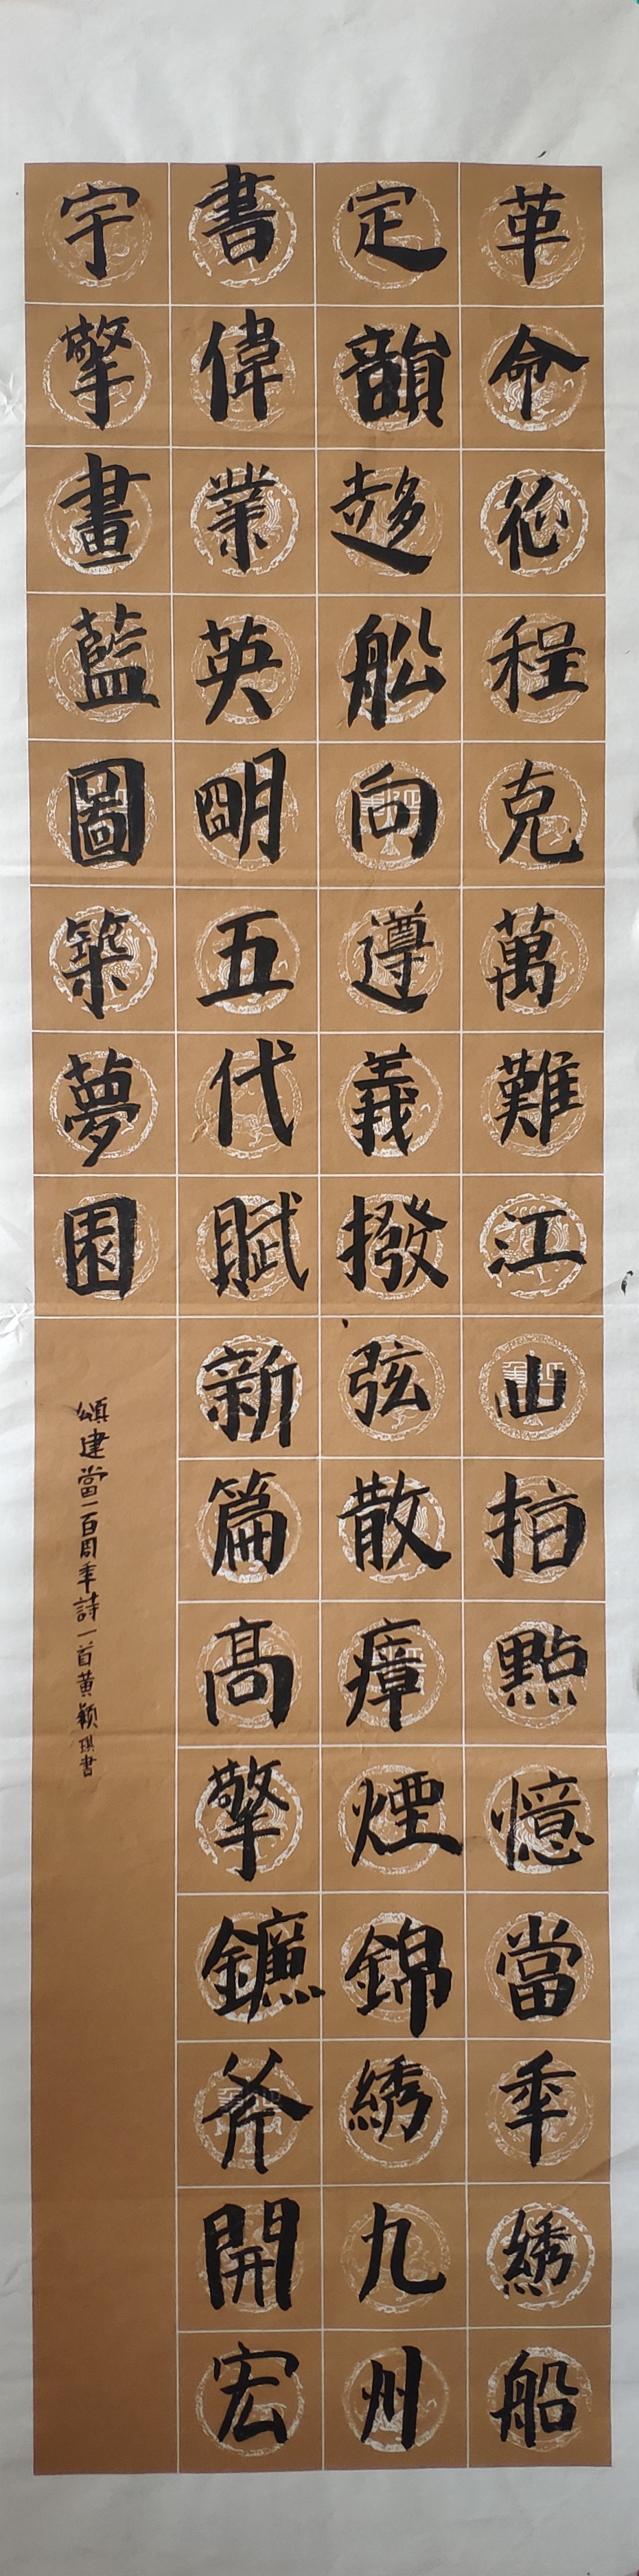 革命征程克萬難江山指點憶當年綉船
定韻趍舩向遵義撥弦散瘴煙錦綉九州
書偉業英明五代賦新篇高擎鐮斧開宏
宇擎畫藍圖築夢園
頌建當一百周年詩一首黄颖琪書